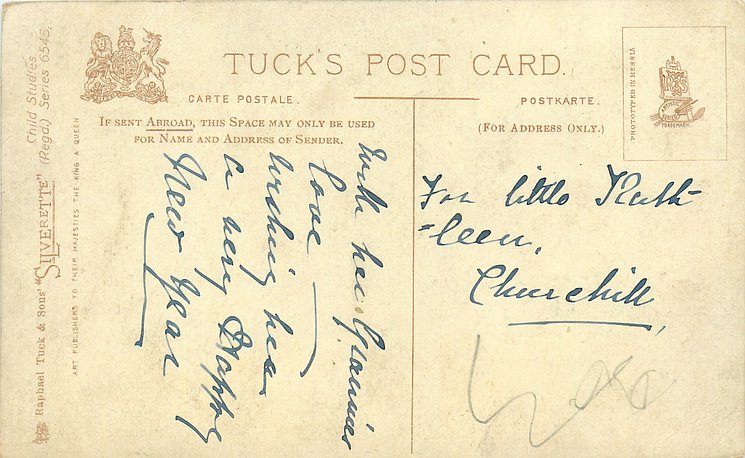 TUCK'S POST CARD.
CARTE POSTALE.
POSTKARTE.
IF SENT ABROAD, THIS SPACE MAY ONLY BE USED
FOR NAME AND ADDRESS OF SENDER.
(FOR ADDRESS ONLY.)
PHOTOTYPED IN HESSIA
TRADEMARK.
Raphael Tuck & Sons' "SILVERETTE"
Child Studies.
(Regd.) Series 6545.
ART PUBLISHERS TO THEIR MAJESTIES THE KING & QUEEN
With her Grannies
love
wishing her
a very Happy
New Year
For little Kath
=leen,
Churchill,